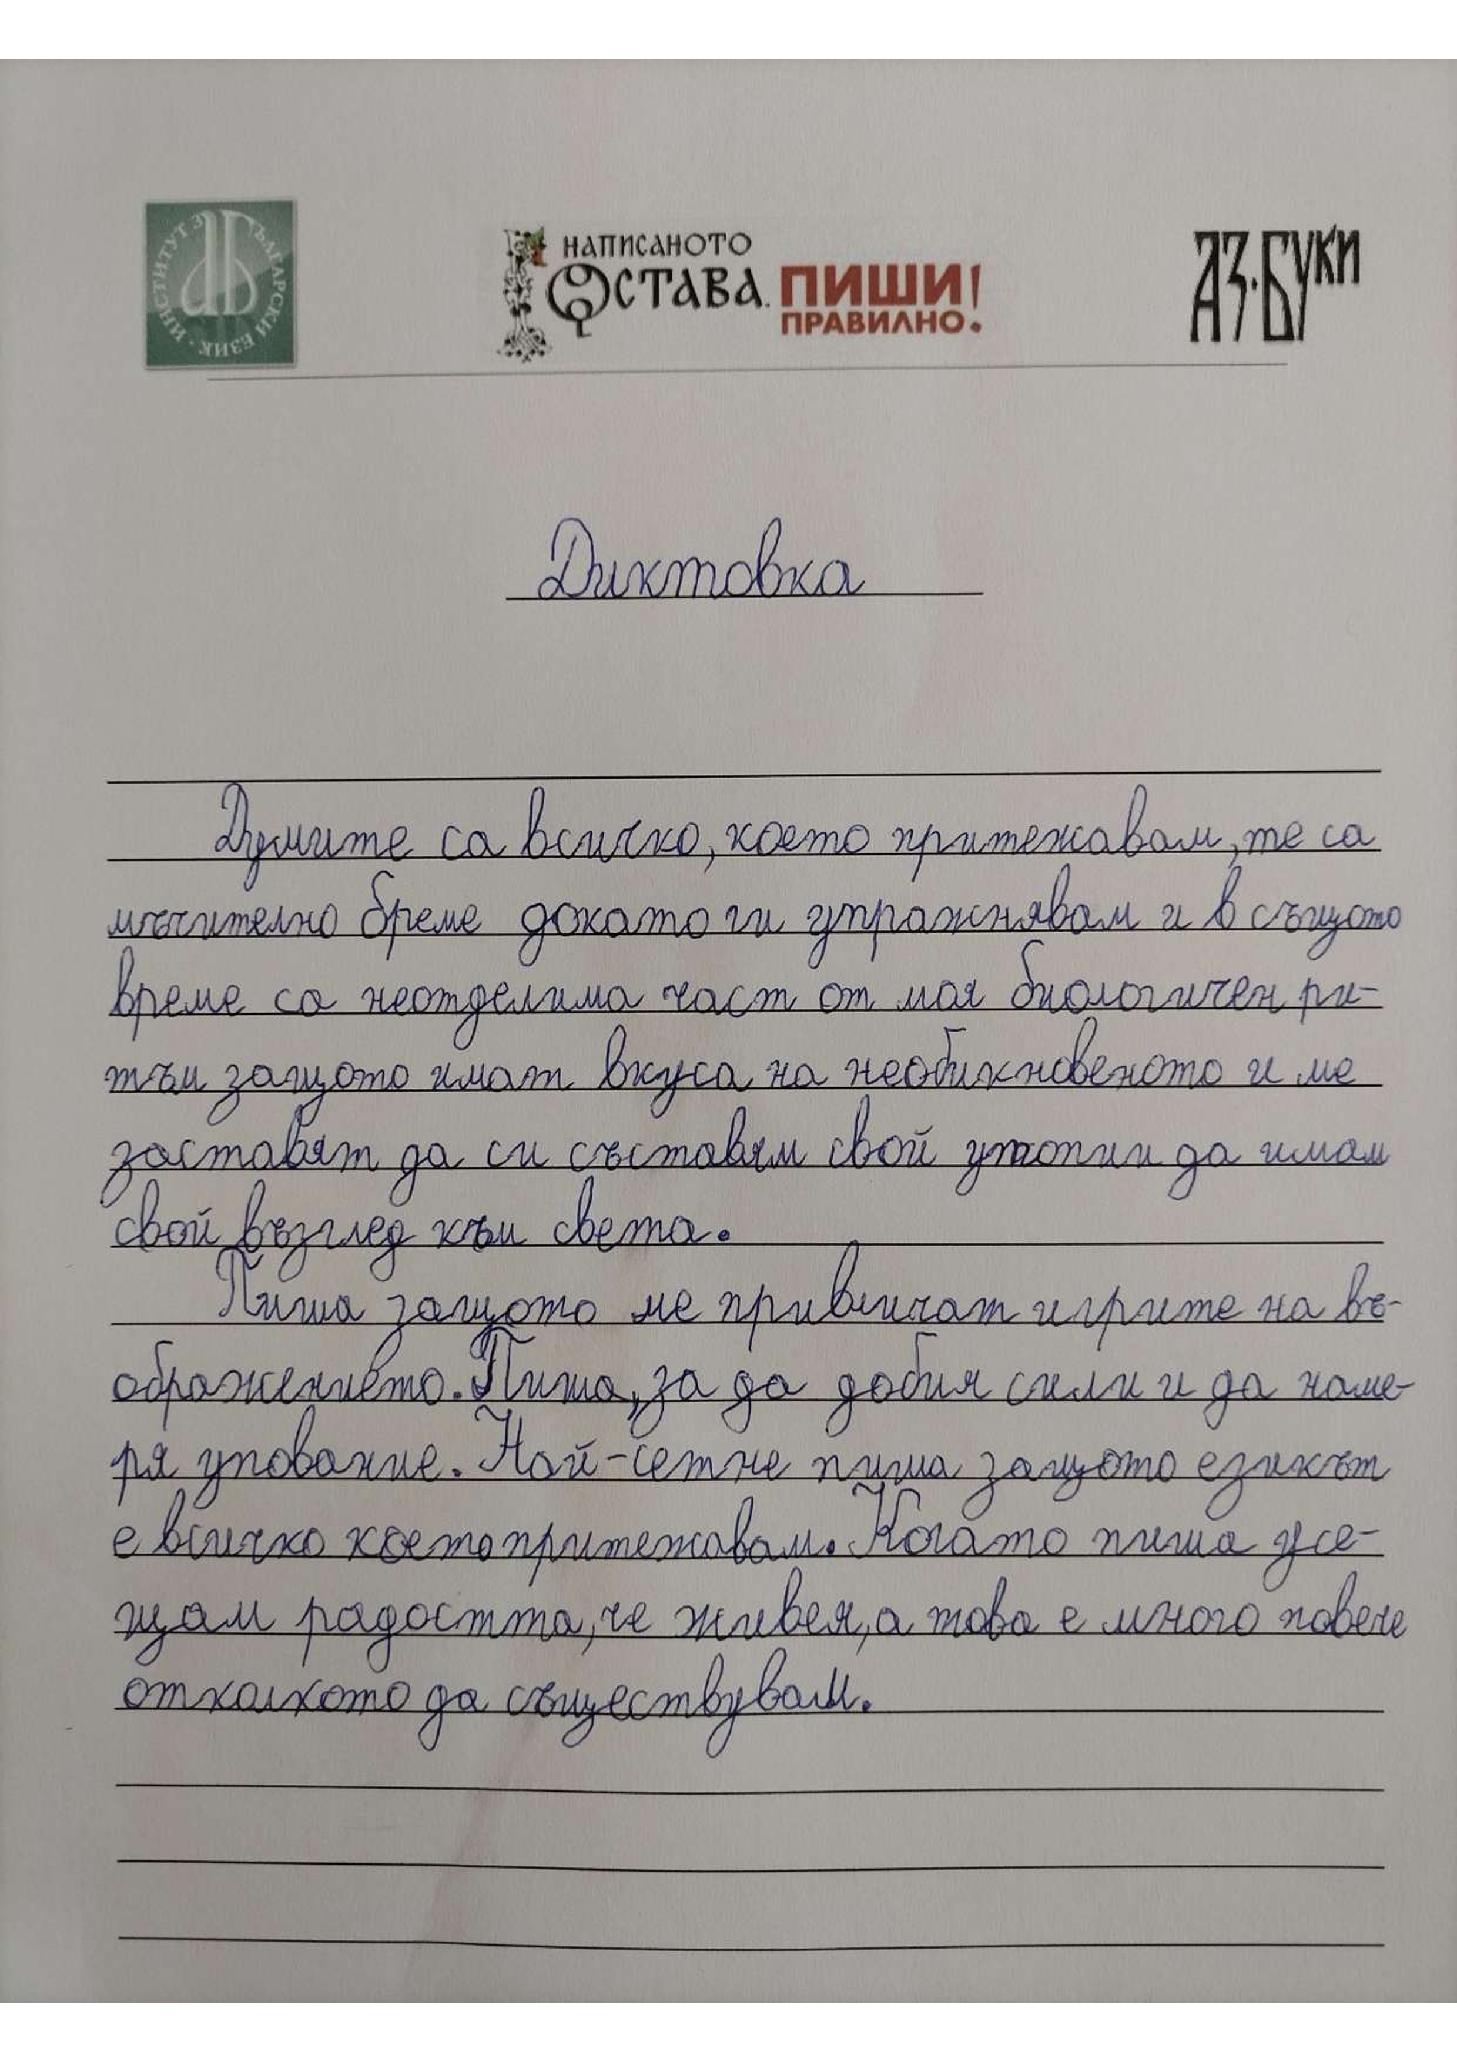 ИНСТИТУТ ЗА БЪЛГАРСКИ ЕЗИК
НАПИСАНОТО
ОСТАВА. ПИШИ!
ПРАВИЛНО!
АЗ·БУКИ
Диктовка
Думите са всичко, което притежавам, те са
мъчително бреме докато ги упражнявам и в същото
време са неотделима част от моя биологичен ри-
тъм защото имат вкуса на необикновеното и ме
заставят да си съставям свой утопии да имам
свой възглед към света.
Пиша защото ме привличат игрите на въ-
ображението. Пиша, за да добия сили и да наме-
ря упование. Най-сетне пиша защото езикът
е всичко което притежавам. Когато пиша усе-
щам радостта, че живея, а това е много повече
отколкото да съществувам.